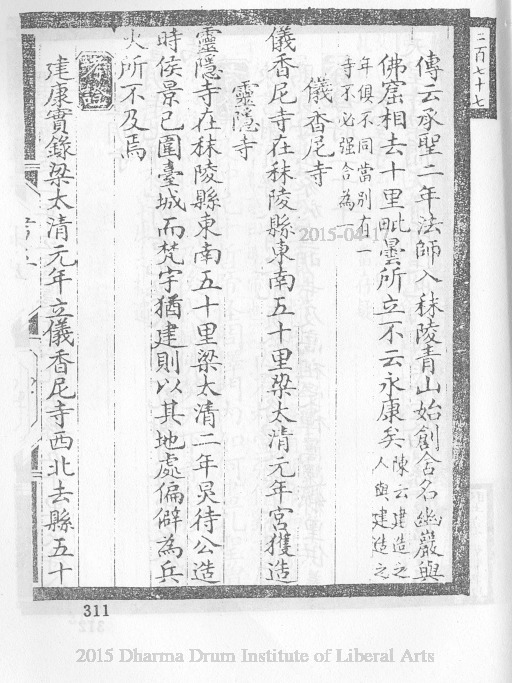 二百七十七
傳云承聖二年法師入秣陵青山始創舍名幽巖與
佛窟相去十里毗曇所立不云永康矣陳云建造之人與建造之
年俱不同當別有一
寺不必强合為一
儀香尼寺
儀香尼寺在秣陵縣東南五十里梁太清元年宮獲造
靈隱寺
靈隱寺在秣陵縣東南五十里梁太清二年炅待公造
時侯景已圍臺城而梵宇猶建則以其地處偏僻為兵
火所不及焉
建康實錄梁太清元年立儀香尼寺西北去縣五十
311
2015 Dharma Drum Institute of Liberal Arts